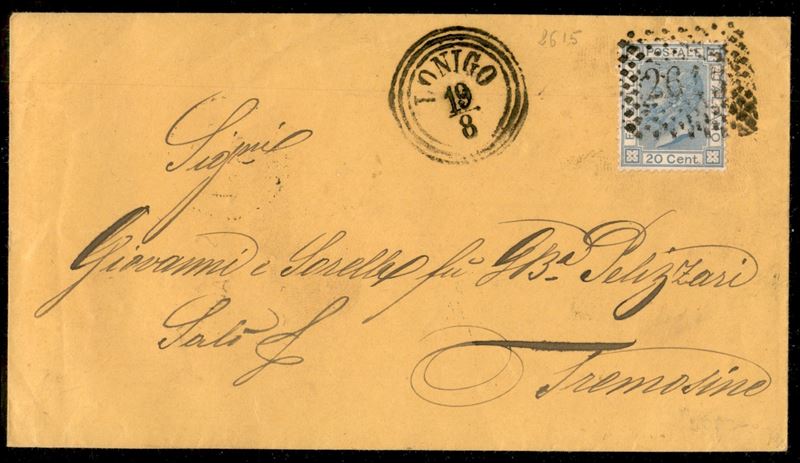 2615
LONIGO
19
8
POSTALE
261
20 Cent.
Sigri
Giovanni e Sorella fu GBa Pelizzari
Salò
Tremosine